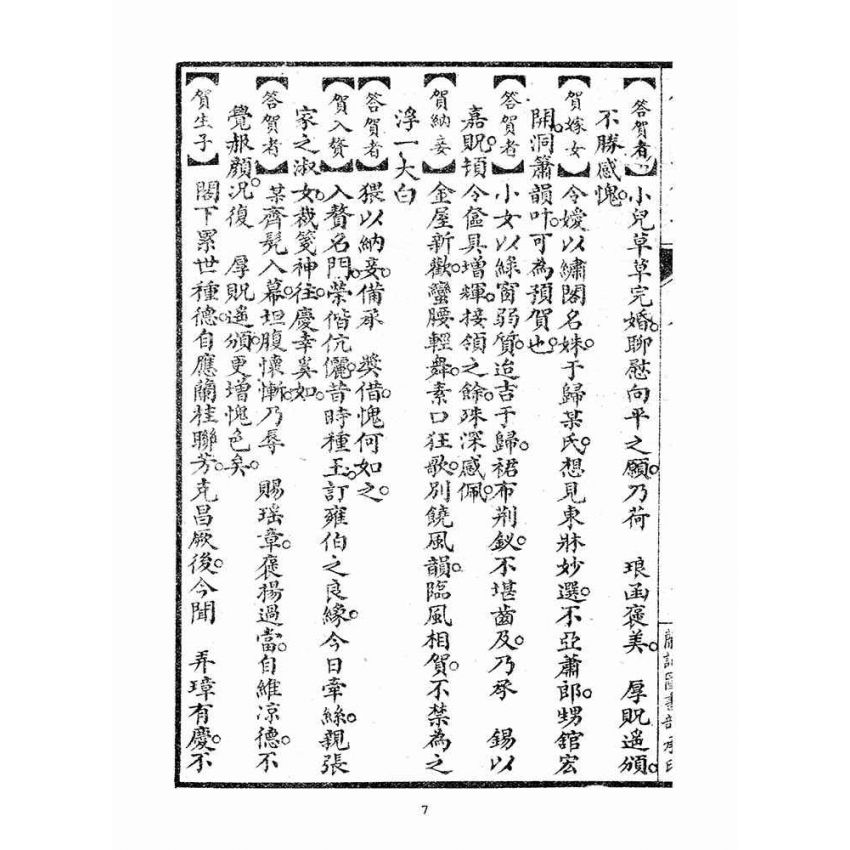 【答賀者】小兒草草完婚。聊慰向平之願。乃荷　琅函褒美。厚貺遙頒。
不勝感愧。
【賀嫁女】令嬡以繡閣名姝。于歸某氏。想見東牀妙選。不亞蕭郎。甥舘宏
開。洞簫韻叶。可為預賀也。
【答賀者】小女以綠窗弱質。迨吉于歸。裙布荆釵。不堪齒及。乃承　錫以
嘉貺。頓令奩具增輝。接領之餘。殊深感佩。
【賀納妾】金屋新歡。蠻腰輕舞。素口狂歌。別饒風韻。臨風相賀。不禁為之
浮一大白
【答賀者】猥以納妾。備承　奬借。愧何如之
【賀入贅】入贅名門。榮偕伉儷。昔時種玉。訂雍伯之良緣。今日牽絲。親張
家之淑女。裁箋神往。慶幸奚如。
【答賀者】某齊髡入幕。坦腹懷慚。乃辱　賜瑤章。褒揚過當。自維凉德。不
覺赧顏。況復　厚貺遙頒。更增愧色矣。
【賀生子】閣下累世種德。自應蘭桂聯芳。克昌厥後。今聞　弄璋有慶。不
7